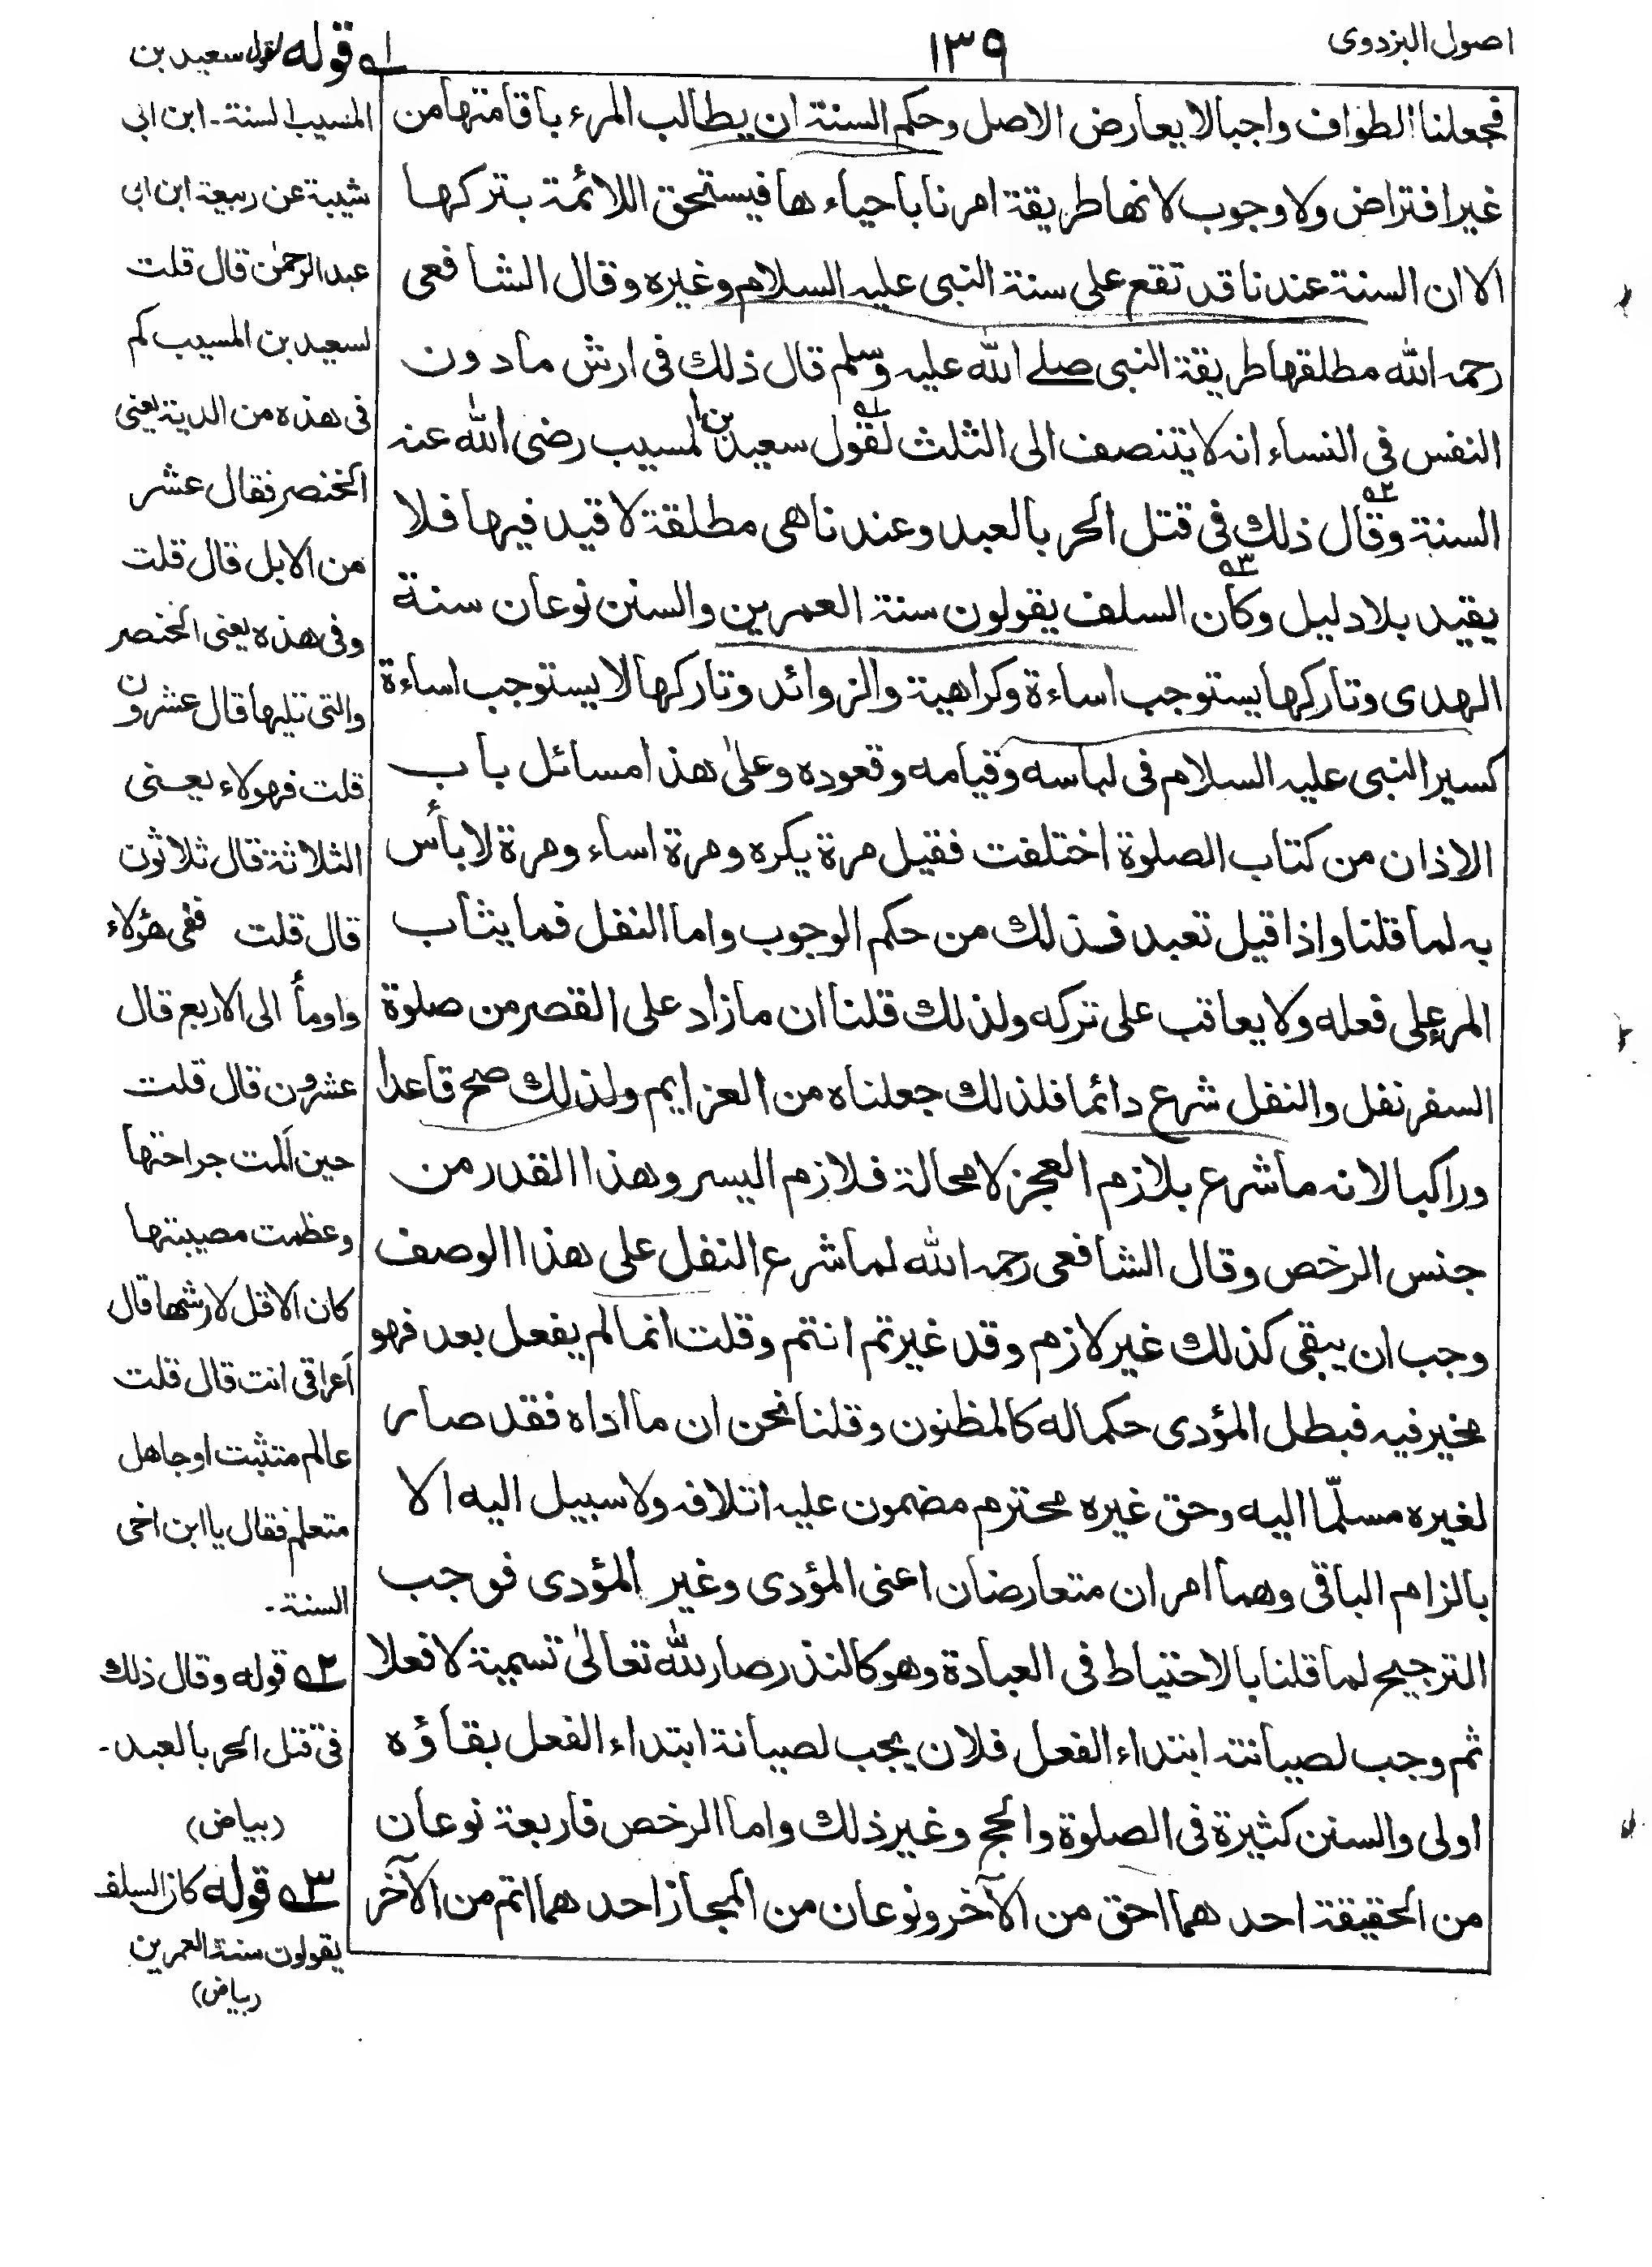 اصول البزدوى
١٣٩
فجعلنا الطواف واجبا لا يعارض الاصل وحكم السنة ان يطالب المرء باقامتها من
غير افتراض ولا وجوب لانها طريقة امرنا باحياء ها فيستحق اللائمة بتركها
الا ان السنة عندنا قد تقع على سنة النبى عليه السلام وغيره وقال الشافعى
رحمه الله مطلقها طريقة النبى صلے الله عليه وسلم قال ذلك فى ارش مادون
النفس فى النساء انه لا يتنصف الى الثلث لقول سعيد بن المسيب رضى الله عنه
السنة وقال ذلك فى قتل الحر بالعبد وعندنا هى مطلقة لا قيد فيها فلا
يقيد بلا دليل وكان السلف يقولون سنة العمرين والسنن نوعان سنة
الهدى وتاركها يستوجب اساءة وكراهية والزوائد وتاركها لا يستوجب اساءة
كسير النبى عليه السلام فى لباسه وقيامه وقعوده وعلىٰ هذا مسائل باب
الاذان من كتاب الصلوة اختلفت فقيل مرة يكره ومرة اساء ومرة لا بأس
به لما قلنا واذا قيل تعبد فذلك من حكم الوجوب واما النفل فما يثاب
المرء على فعله ولا يعاقب على تركه ولذلك قلنا ان مازاد على القصر من صلوة
السفر نفل والنفل شرع دائما فلذلك جعلناه من العزايم ولذلك صح قاعدا
وراكبا لانه ما شرع بلازم العجز لا محالة فلازم اليسر وهذا القدر من
جنس الرخص وقال الشافعى رحمه الله لما شرع النفل على هذا الوصف
وجب ان يبقى كذلك غير لازم وقد غيرتم انتم وقلت انما لم يفعل بعد فهو
مخير فيه فبطل المؤدى حكماله كالمظنون وقلنا نحن ان ما اداه فقد صار
لغيره مسلّما اليه وحق غيره محترم مضمون عليه اتلافه ولا سبيل اليه الا
بالزام الباقى وهما امران متعارضان اعنى المؤدى وغير المؤدى فوجب
الترجيح لما قلنا بالاحتياط فى العبادة وهو كالنذر صار لله تعالىٰ تسمية لا فعلا
ثم وجب لصيانته ابتداء الفعل فلان يجب لصيانة ابتداء الفعل بقاؤه
اولى والسنن كثيرة فى الصلوة والحج وغير ذلك واما الرخص فاربعة نوعان
من الحقيقة احد هما احق من الآخر ونوعان من المجاز احد هما اتم من الآخر
١ه قوله لقول سعيد بن
المسيب السنة ـ ابن ابى
شيبة عن ربيعة ابن ابى
عبد الرحمٰن قال قلت
لسعيد بن المسيب كم
فى هذه من الدية يعنى
الخنصر فقال عشر
من الابل قال قلت
وفى هذه يعنى الخنصر
والتى تليها قال عشرون
قلت فهولاء يعنى
الثلاثة قال ثلاثون
قال قلت ففى هؤلاء
واومأ الى الاربع قال
عشرون قال قلت
حين اَلمت جراحتها
وعظمت مصيبتها
كان الاقل لارشها قال
اَعراقى انت قال قلت
عالم متثبت او جاهل
متعلم فقال يا ابن اخى
السنة ـ
٢ه قوله وقال ذلك
فى قتل الحر بالعبد ـ
(بياض)
٣ه قوله كان السلف
يقولون سنة العمرين
(بياض)